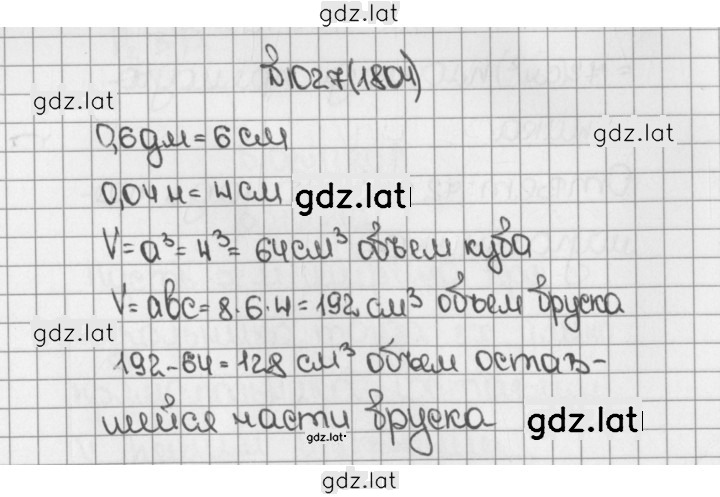 gdz.lat
№1027(1804)
gdz.lat
0,6дм = 6 см
gdz.lat
0,04 м = 4 см
gdz.lat
V = a³ = 4³ = 64 см³ объем куба
V = abc = 8 · 6 · 4 = 192 см³ объем бруска
gdz.lat
192 - 64 = 128 см³ объем остав-
шейся части бруска
gdz.lat
gdz.lat
gdz.lat